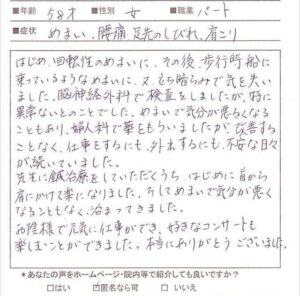 ■年齢 58才 ■性別 女 ■職業 パート
■症状 めまい、腰痛 足先のしびれ、肩こり
はじめ、回転性のめまいに、その後、歩行時船に
乗っているようなめまいに、又立ち暗らみで気を失い
ました。脳神経外科で検査をしましたが、特に
異常ないとのことでした。めまいで気分が悪るくなる
こともあり、婦人科で薬をもらいましたが、改善する
ことなく、仕事をするにも、外出するにも、不安な日々
が続いていました。
先生に鍼治療をしていただくうち、はじめに首から
肩にかけて楽になりました。そしてめまいで気分が悪く
なることもなく、治まってきました。
お陰様で元気に仕事ができ、好きなコンサートも
楽しむことができました。本当にありがとうございました。
*あなたの声をホームページ・院内等で紹介しても良いですか?
□はい ☑匿名なら可 □いいえ